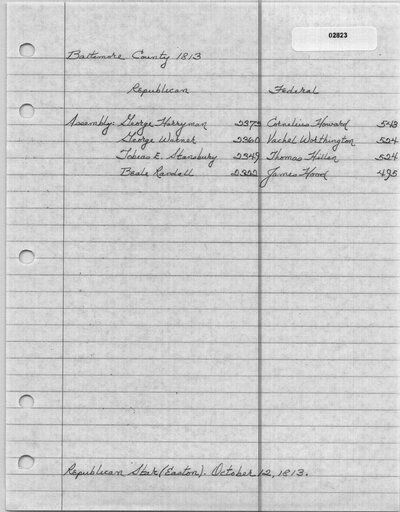 02823
Baltimore County 1813
Republican Federal
Assembly: George Harryman 2375 Cornelius Howard 543
George Warner 2360 Vachel Worthington 524
Tobias E. Stansbury 2349 Thomas Hillen 524
Beale Randell 2322 James Hood 495
Republican Star (Easton). October 12, 1813.